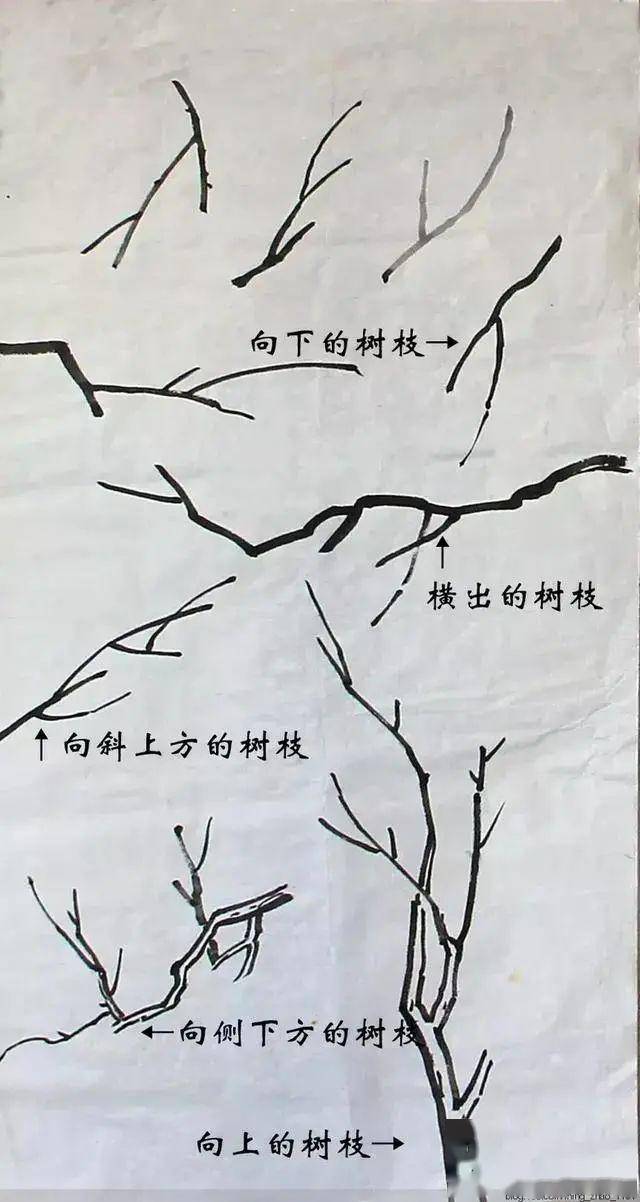 向下的树枝→
横出的树枝
向斜上方的树枝
←向侧下方的树枝
向上的树枝→